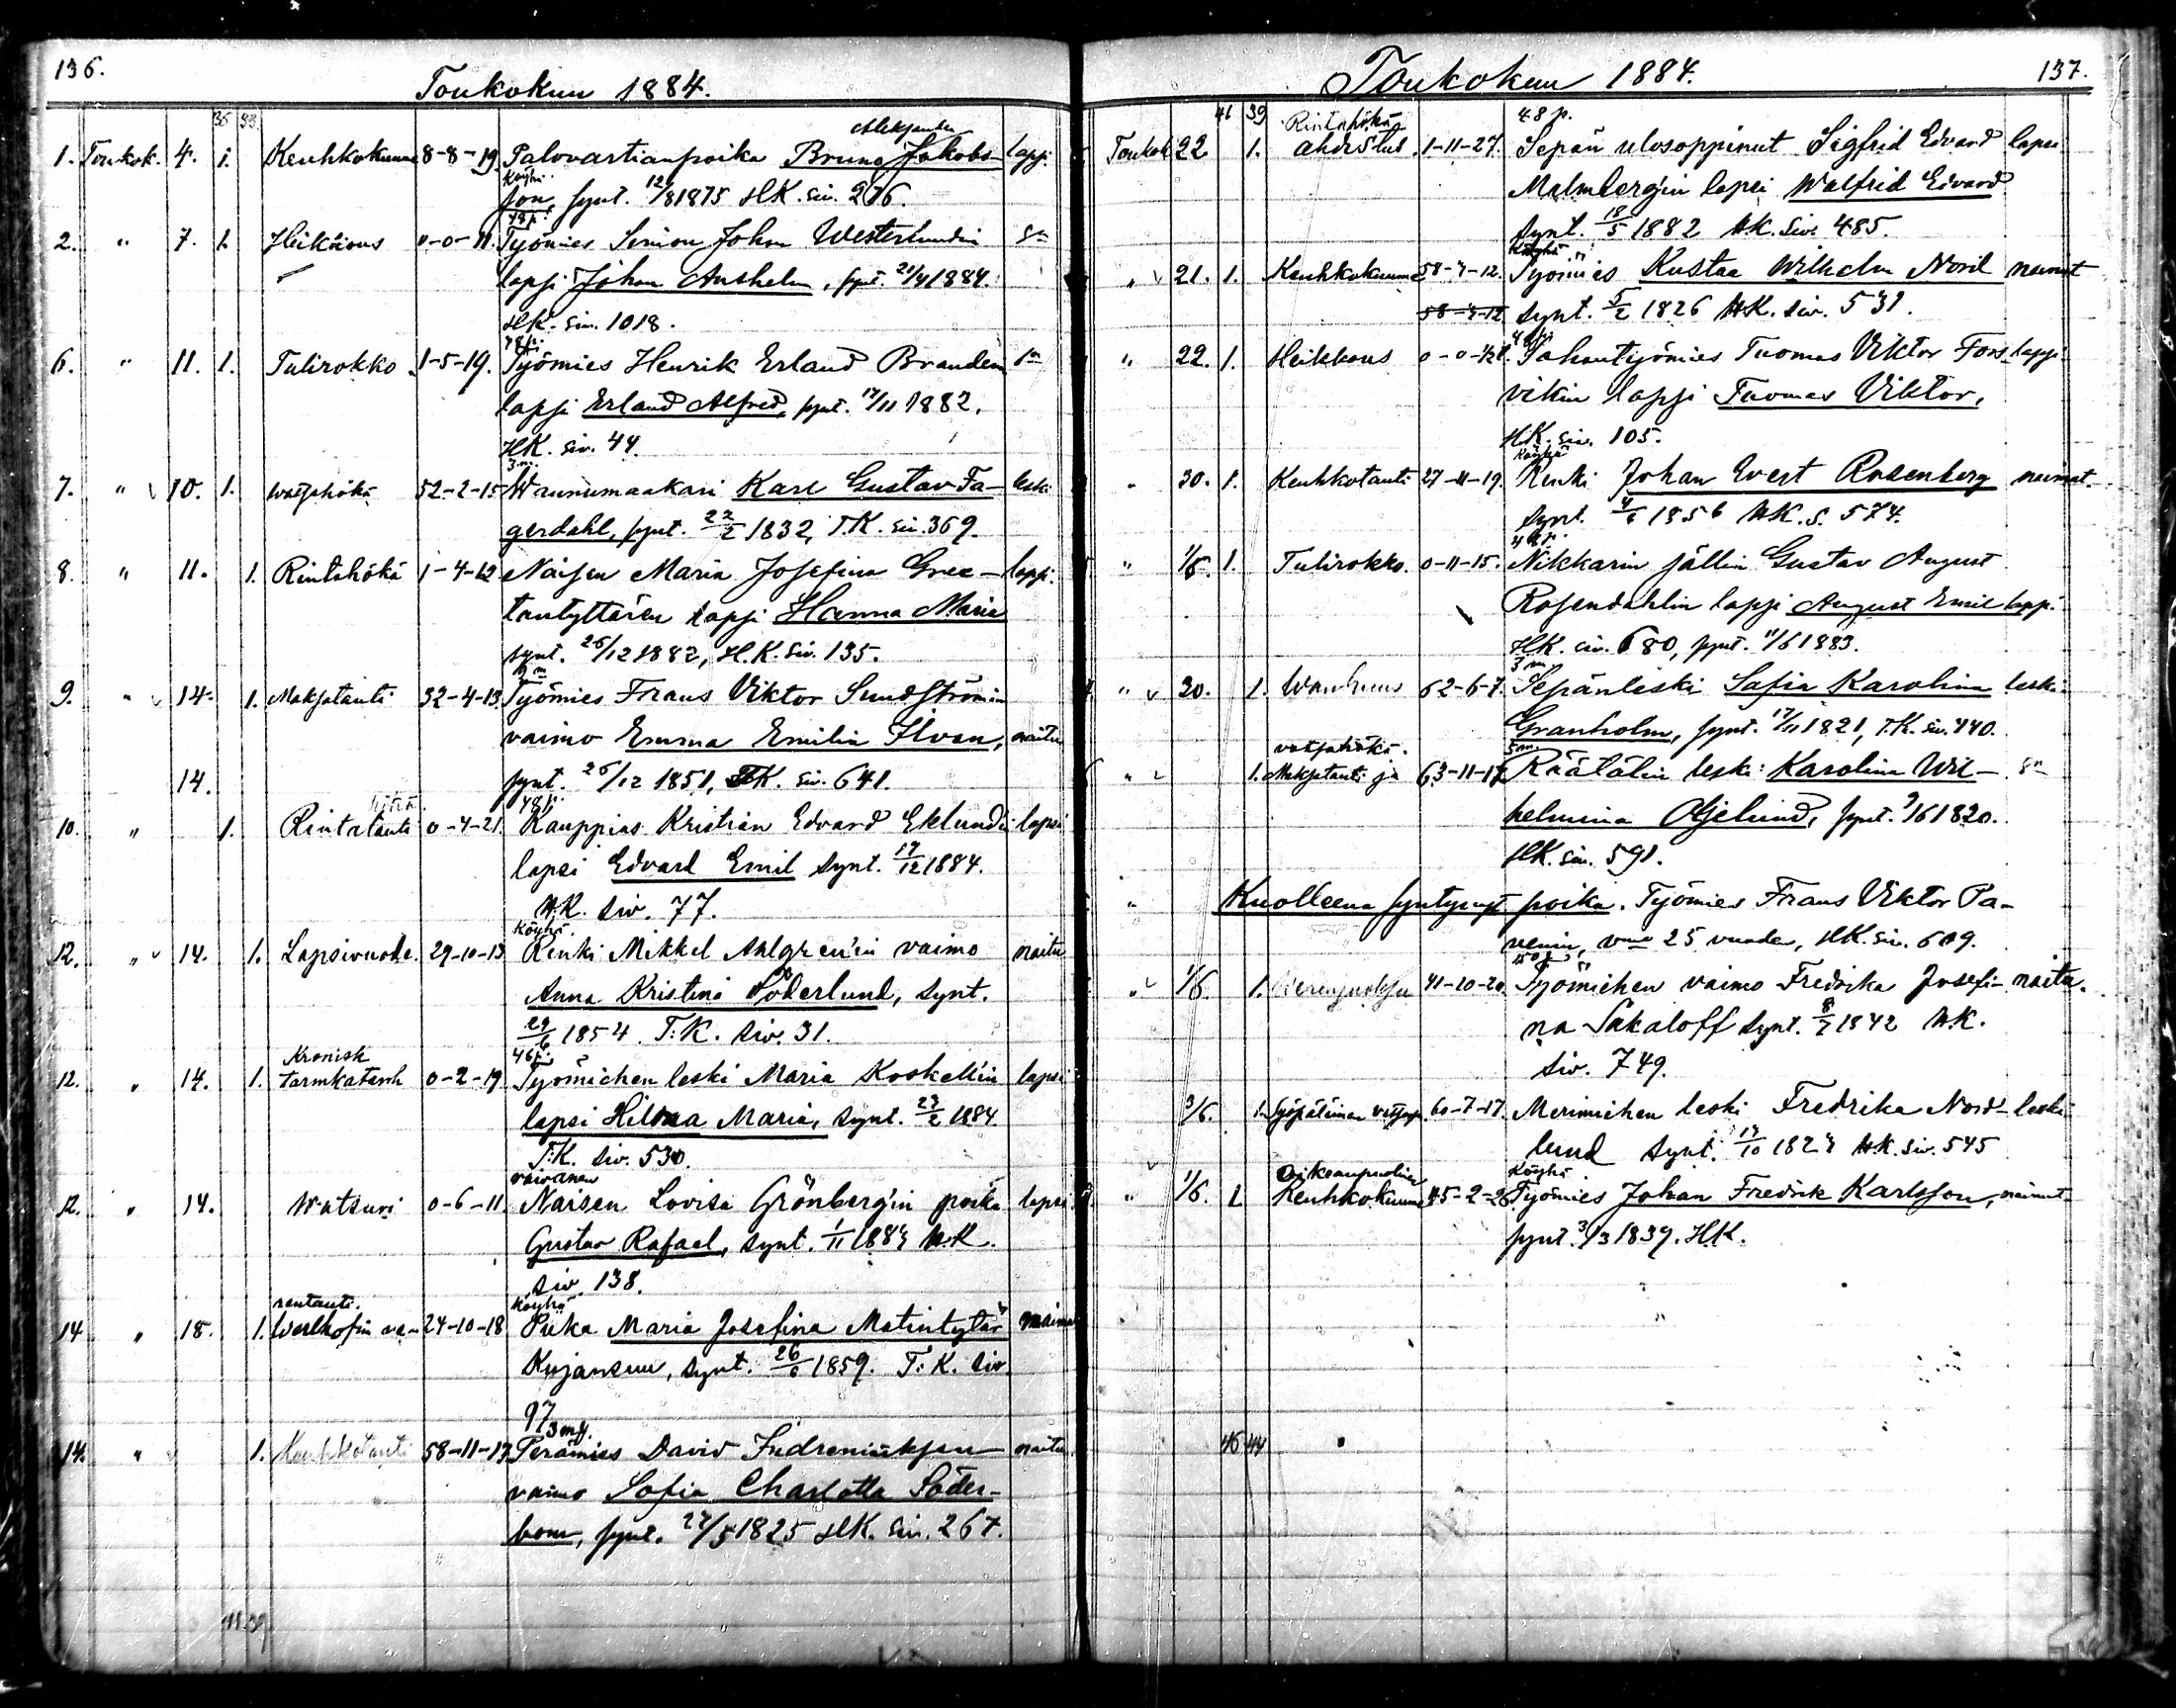 136.
Toukokuu 1884.
35 33.
Aleksander
1. Toukok. 4. 1. Keuhkokuume 8-8-19. Palovartianpoika Bruno Jakobs- lapsi
Köyhä
son, synt. 12/8 1875 HK. siv. 276.
48 p.
2. " 7. 1. Heikkous 0-0-11. Työmies Simon Johan Westerlundin
lapsi Johan Anshelm, synt. 21/4 1884.
HK. siv. 1018.
48 p.
6. " 11. 1. Tulirokko 1-5-19. Työmies Henrik Erland Branden
lapsi Erland Alfred, synt. 17/11 1882.
HK. siv. 44.
3 m.
7. " 10. 1. Watsahökä 52-2-15 Waunumaakari Karl Gustav Fa- leski
gerdahl, synt. 22/2 1832, T.K. siv. 369.
8. " 11. 1. Rintahökä 1-4-12 Naisen Maria Josefina Gree- lapsi.
tantyttären lapsi Hanna Maria
synt. 26/12 1882, H.K. siv. 135.
9. " 14. 1. Maksatauti 32-4-13. Työmies Frans Viktor Sundströmin
vaimo Emma Emilia Ilvan, naitu
14. synt. 26/12 1851, TK. siv. 641.
hökä. 48 p.
10. " 1. Rintatauti 0-4-21. Kauppias Kristian Edvard Eklundin lapsi
lapsi Edvard Emil synt. 17/12 1884.
H.K. siv. 77.
Köyhä.
12. " 14. 1. Lapsivuode. 29-10-13 Renki Mikkel Ahlgren'in vaimo naitu
Anna Kristina Söderlund, synt.
29/6 1854. T.K. siv. 31.
Kronisk 48 p.
12. " 14. 1. tarmkatarrh 0-2-19 Työmiehen leski Maria Koskellin lapsi
lapsi Hilma Maria, synt. 23/2 1884.
T.K. siv. 530.
vaivanen
12. " 14. Watsuri 0-6-11 Naisen Lovisa Grönberg'in poika lapsi
Gustav Rafael, synt. 1/11 1883 H.K.
siv. 138.
rentauti. Köyhä
14 " 18. 1. Werlhofin ve- 24-10-18 Piika Maria Josefina Matintytär naima
Kujansuu, synt. 26/6 1859. T.K. siv.
97
3 m.
14. " 1. Keuhkotauti 58-11-17 Perämies David Indreniuksen naitu
vaimo Sofia Charlotta Söder-
bom, synt. 27/5 1825 HK. siv. 267.
41. 39
Toukokuu 1884. 137.
41 39 Rintahökä 48 p.
Toukok 22 1. ahdistus 1-11-27. Sepän ulosoppinut Sigfrid Edvard lapsi
Malmberg'in lapsi Walfrid Edvard
synt. 18/5 1882 H.K. siv. 485.
Köyhä
" 21. 1. Keuhkokuume 58-3-12. Työmies Kustaa Wilhelm Nord nainut
58-3-12 synt. 5/2 1826 H.K. siv. 531.
48 p.
" 22. 1. Heikkous 0-0-1/21. Sahantyömies Tuomas Viktor Fors- lapsi
vikin lapsi Tuomas Viktor,
H.K. siv. 105.
Köyhä
" 30. 1. Keuhkotauti 27-11-19. Renki Johan Evert Rosenberg nainut.
synt. 4/6 1856 H.K. s. 574.
48 p.
" 1/6. 1. Tulirokko. 0-11-15. Nikkarin sällin Gustav August
Rosendahlin lapsi August Emil lapsi
HK. siv. 680, synt. 11/6 1883.
3 m
" 20. 1. Wanhuus 62-6-7. Sepänleski Sofia Karolina leski
Granholm, synt. 17/11 1821, T.K. siv. 440.
vatsahökä. 5 m.
" 1. Maksatauti ja 63-11-17 Räätälin leski Karolina Wil-
helmina Öhjelund, synt. 9/6 1820.
HK. siv. 591.
" Kuolleena syntynyt poika. Työmies Frans Viktor Pa-
nenin, vmo 25 vuoden, HK. siv. 609.
" 1/6. 1. Werenjuoksu 41-10-20. Työmiehen vaimo Fredrika Josefi- naitu.
na Sakaloff synt. 8/7 1842 H.K.
siv. 749.
3/6. 1. Syöpäläinen vatsassa 60-7-17. Merimiehen leski Fredrika Nord- leski
lund synt. 13/10 1823 H.K. siv. 545
Oikeanpuolinen Köyhä
" 1/6. 1. Keuhkokuume 45-2-28. Työmies Johan Fredrik Karlsson, nainut
synt. 3/3 1839. HK.
46 44